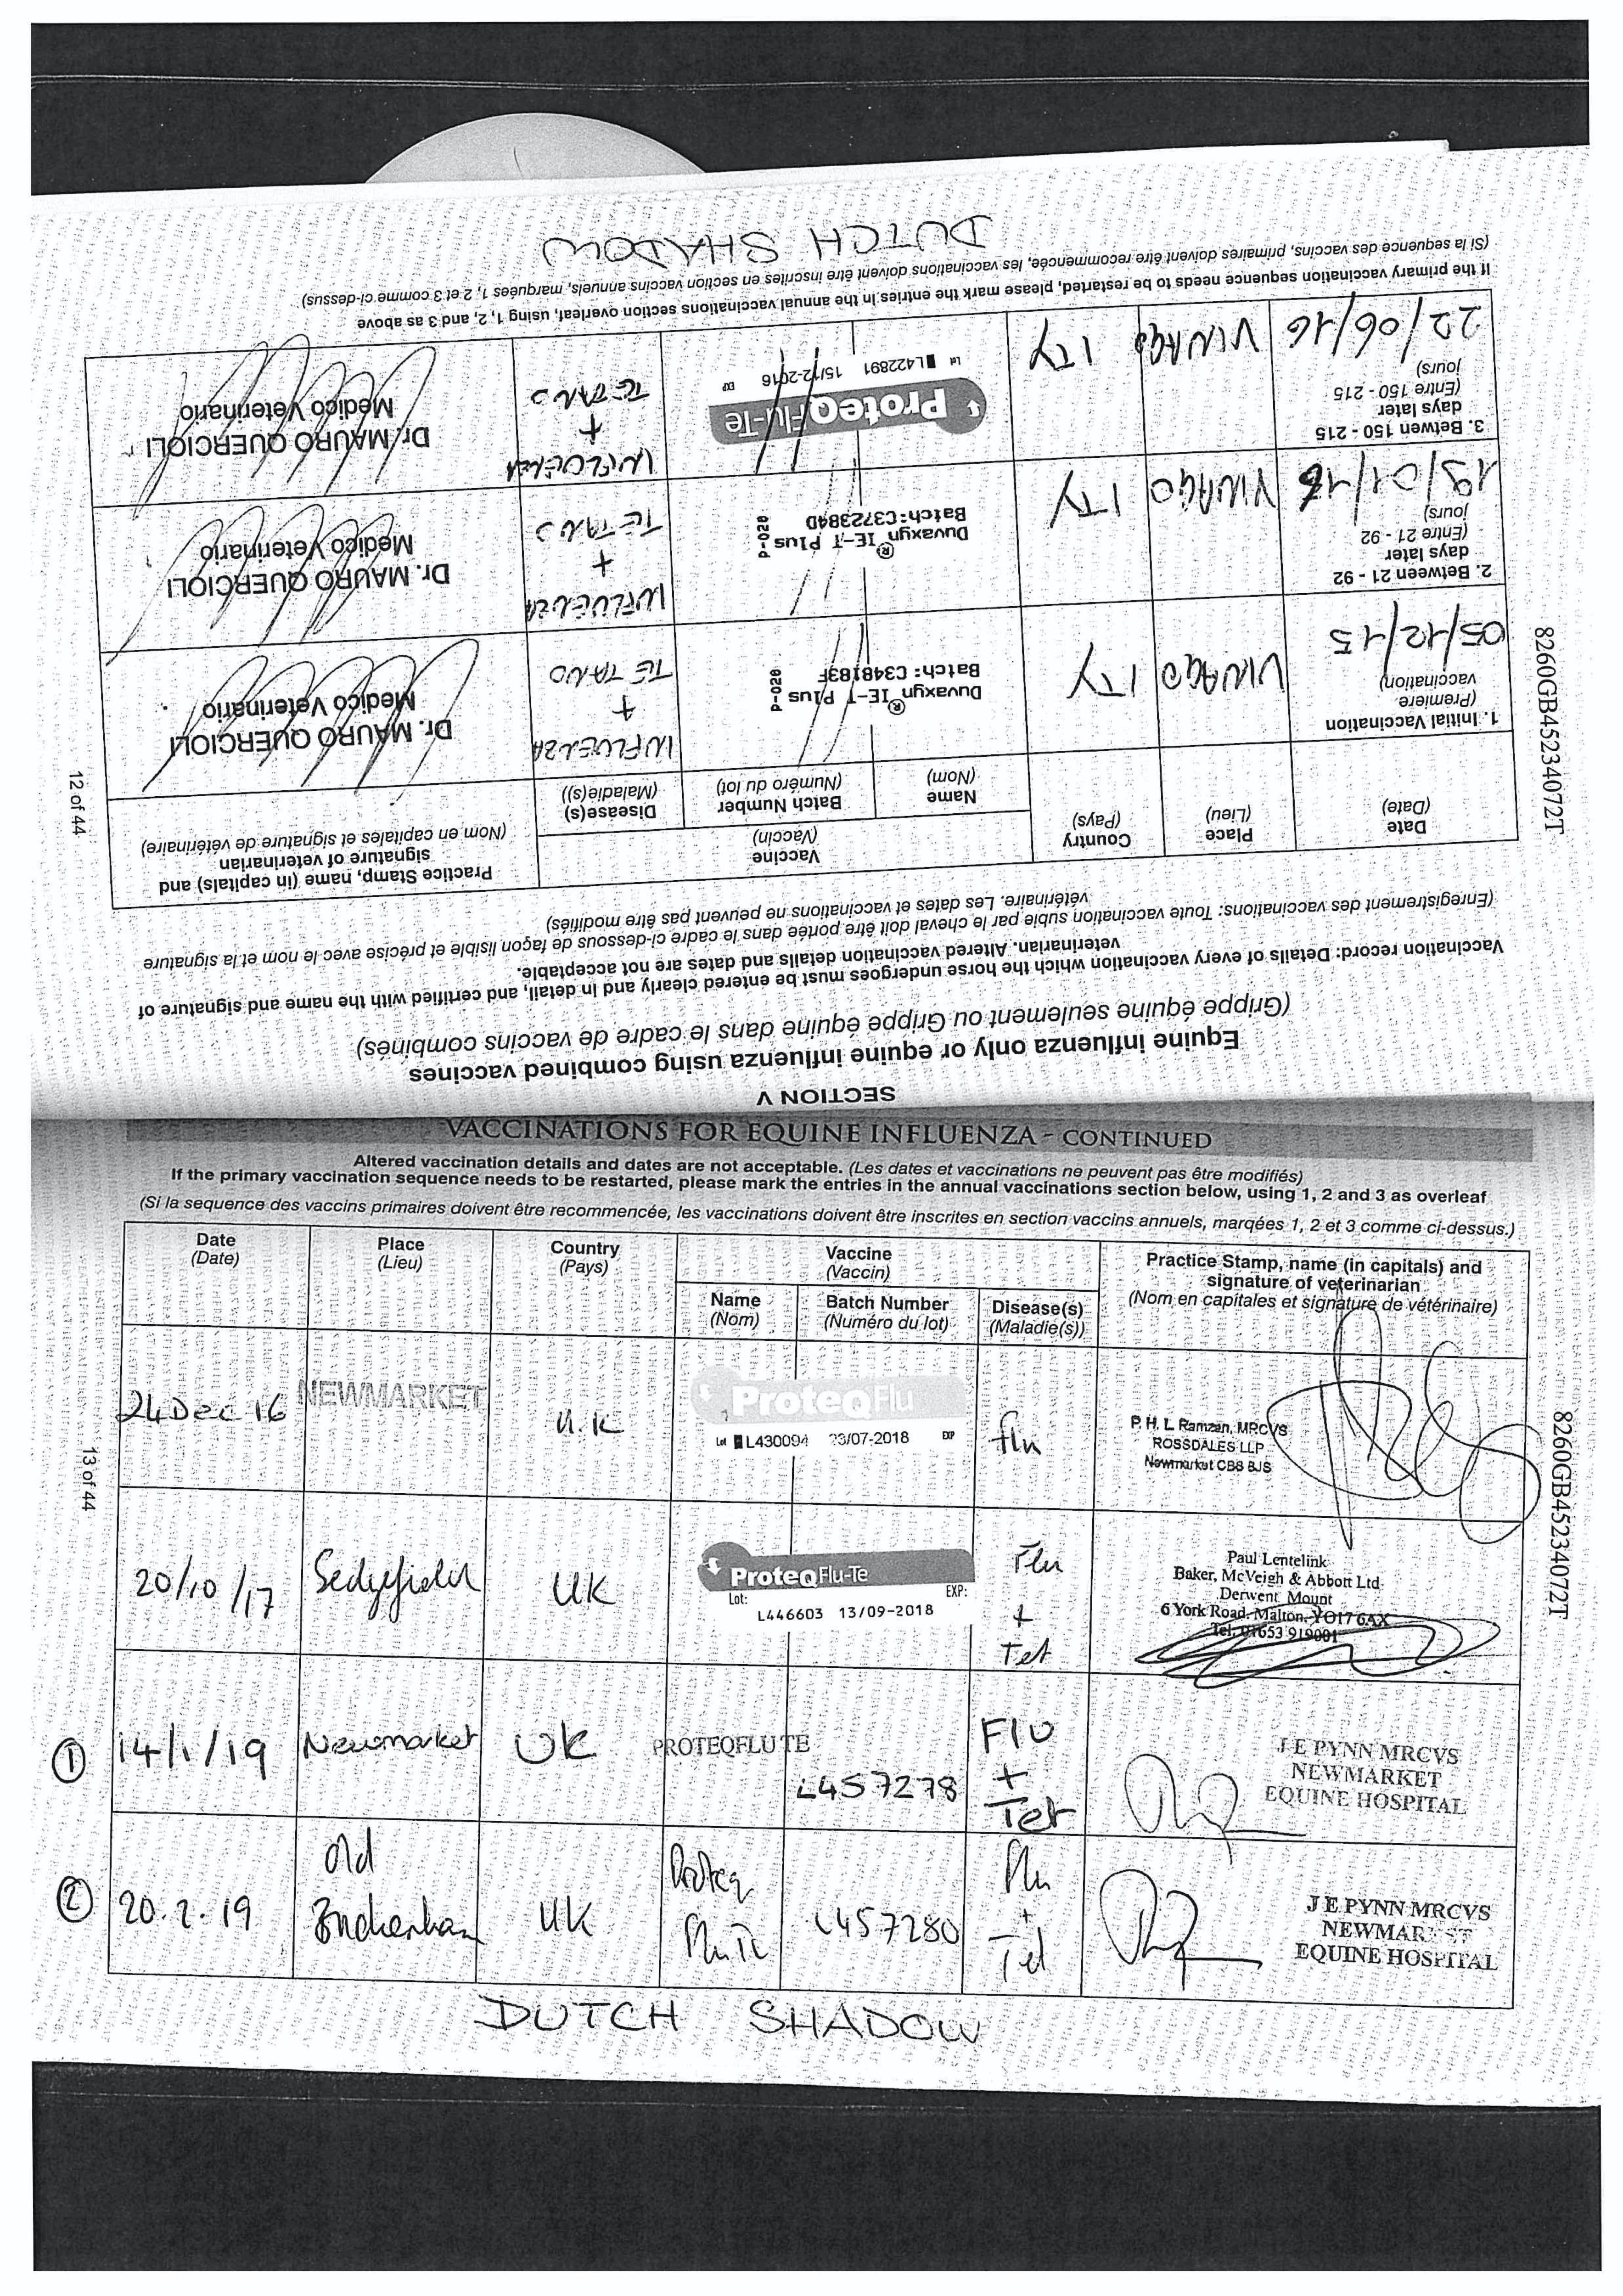 12 of 44
8260GB45234072T
SECTION V
Equine influenza only or equine influenza using combined vaccines
(Grippe équine seulement ou Grippe équine dans le cadre de vaccins combinés)
Vaccination record: Details of every vaccination which the horse undergoes must be entered clearly and in detail, and certified with the name and signature of
veterinarian. Altered vaccination details and dates are not acceptable.
(Enregistrement des vaccinations: Toute vaccination subie par le cheval doit être portée dans le cadre ci-dessous de façon lisible et précise avec le nom et la signature
vétérinaire. Les dates et vaccinations ne peuvent pas être modifiés)
Date
(Date)
Place
(Lieu)
Country
(Pays)
Vaccine
(Vaccin)
Name
(Nom)
Batch Number
(Numéro du lot)
Disease(s)
(Maladie(s))
Practice Stamp, name (in capitals) and
signature of veterinarian
(Nom en capitales et signature de vétérinaire)
1. Initial Vaccination
(Première
vaccination)
05/12/15
VINAGO
ITY
Duvaxyn® IE-T Plus
Batch: C348183F
P-028
INFLUENZA
+
TETANO
Dr. MAURO QUERCIOLI
Medico Veterinario
2. Between 21 - 92
days later
(Entre 21 - 92
jours)
19/01/16
VINAGO
ITY
Duvaxyn® IE-T Plus
Batch: C372384D
P-028
INFLUENZA
+
TETANO
Dr. MAURO QUERCIOLI
Medico Veterinario
3. Betwen 150 - 215
days later
(Entre 150 - 215
jours)
22/06/16
VINAGO
ITY
ProteqFlu-Te
Lot L422891 15/12-2016 EXP
INFLUENZA
+
TETANO
Dr. MAURO QUERCIOLI
Medico Veterinario
If the primary vaccination sequence needs to be restarted, please mark the entries in the annual vaccinations section overleaf, using 1, 2, and 3 as above
(Si la sequence des vaccins, primaires doivent être recommencée, les vaccinations doivent être inscrites en section vaccins annuels, marquées 1, 2 et 3 comme ci-dessus)
DUTCH SHADOW
VACCINATIONS FOR EQUINE INFLUENZA - CONTINUED
Altered vaccination details and dates are not acceptable. (Les dates et vaccinations ne peuvent pas être modifiés)
If the primary vaccination sequence needs to be restarted, please mark the entries in the annual vaccinations section below, using 1, 2 and 3 as overleaf
(Si la sequence des vaccins primaires doivent être recommencée, les vaccinations doivent être inscrites en section vaccins annuels, marqées 1, 2 et 3 comme ci-dessus.)
Date
(Date)
Place
(Lieu)
Country
(Pays)
Vaccine
(Vaccin)
Name
(Nom)
Batch Number
(Numéro du lot)
Disease(s)
(Maladie(s))
Practice Stamp, name (in capitals) and
signature of veterinarian
(Nom en capitales et signature de vétérinaire)
24 Dec 16
NEWMARKET
U.K
ProteqFlu
Lot L430094 23/07-2018 EXP
flu
P. H. L Ramzan, MRCVS
ROSSDALES LLP
Newmarket CB8 8JS
20/10/17
Sedgefield
UK
ProteqFlu-Te
Lot: EXP:
L446603 13/09-2018
Flu
+
Tet
Paul Lentelink
Baker, McVeigh & Abbott Ltd
Derwent Mount
6 York Road, Malton, YO17 6AX
Tel: 01653 919001
1
14/1/19
Newmarket
UK
PROTEQFLU TE
L457278
Flu
+
Tet
J E PYNN MRCVS
NEWMARKET
EQUINE HOSPITAL
2
20.2.19
Old
UK
Proteq
Flu Te
L457280
Flu
+
Tet
J E PYNN MRCVS
NEWMARKET
EQUINE HOSPITAL
DUTCH SHADOW
13 of 44
8260GB45234072T